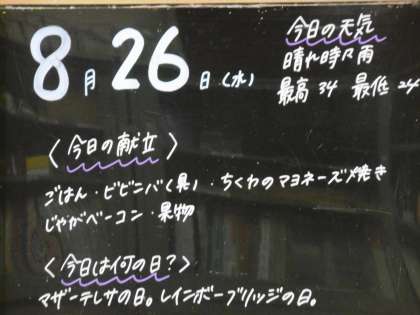 8月26日(水)
今日の天気
晴れ時々雨
最高 34 最低 24
〈今日の献立〉
ごはん・ビビンバ(具)・ちくわのマヨネーズ焼き
じゃがベーコン・果物
〈今日は何の日?〉
マザーテレサの日。レインボーブリッジの日。